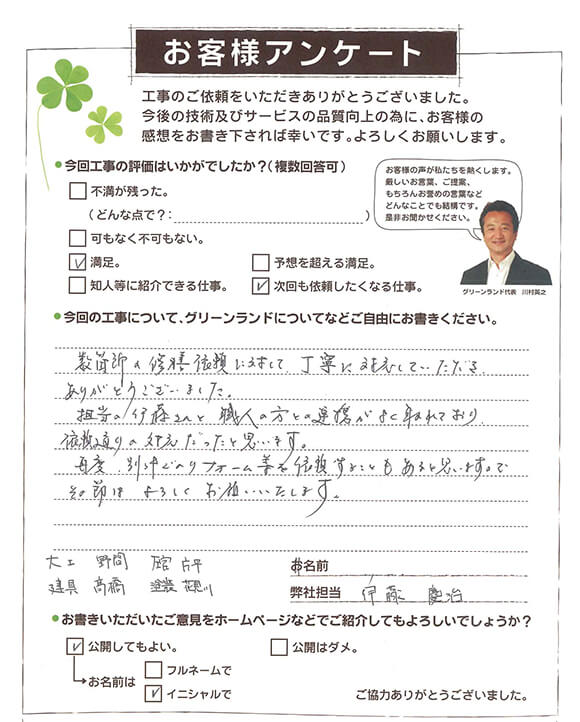 お客様アンケート
工事のご依頼をいただきありがとうございました。
今後の技術及びサービスの品質向上の為に、お客様の
感想をお書き下されば幸いです。よろしくお願いします。
●今回工事の評価はいかがでしたか？（複数回答可）
不満が残った。
（どんな点で？：）
可もなく不可もない。
満足。
予想を超える満足。
知人等に紹介できる仕事。
次回も依頼したくなる仕事。
お客様の声が私たちを熱くします。
厳しいお言葉、ご提案、
もちろんお誉めの言葉など
どんなことでも結構です。
是非お聞かせください。
グリーンランド代表 川村英之
●今回の工事について、グリーンランドについてなどご自由にお書きください。
数箇所の修繕依頼に対して、丁寧に対応していただき
ありがとうございました。
担当の伊藤さんと職人の方との連携がよく取れており、
依頼通りの対応だったと思います。
再度、別件でのリフォーム等を依頼することもあると思いますので
その節は よろしく お願いいたします。
大工 野間
建具 高橋 塗装
お名前
弊社担当 伊藤 慶治
●お書きいただいたご意見をホームページなどでご紹介してもよろしいでしょうか？
公開してもよい。
公開はダメ。
お名前は
フルネームで
イニシャルで
ご協力ありがとうございました。